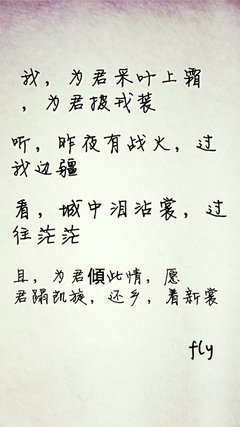 我，为君采叶上霜
，为君披戎装
听，昨夜有战火，过
我边疆
看，城中泪沾裳，过
往茫茫
且，为君傾此情，愿
君踢凯旋，还乡，着新裳
fly